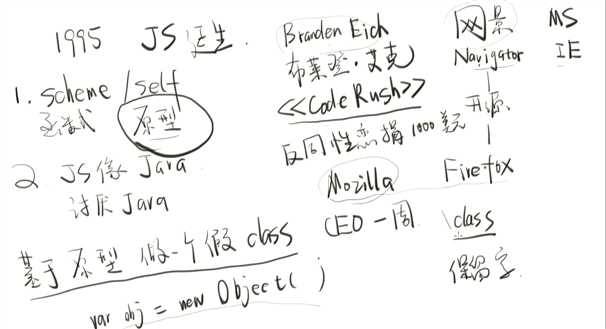 1995 JS 诞生.
1. scheme / self
函数式 原型
2. JS像 Java
讨厌 Java
基于原型 做一个假 class
var obj = new Object( )
Branden Eich
布莱登·艾克
<<Code Rush>>
反同性恋捐1000美元
Mozilla
CEO 一周
网景
Navigator
开源
Firefox
class
保留字.
MS
IE